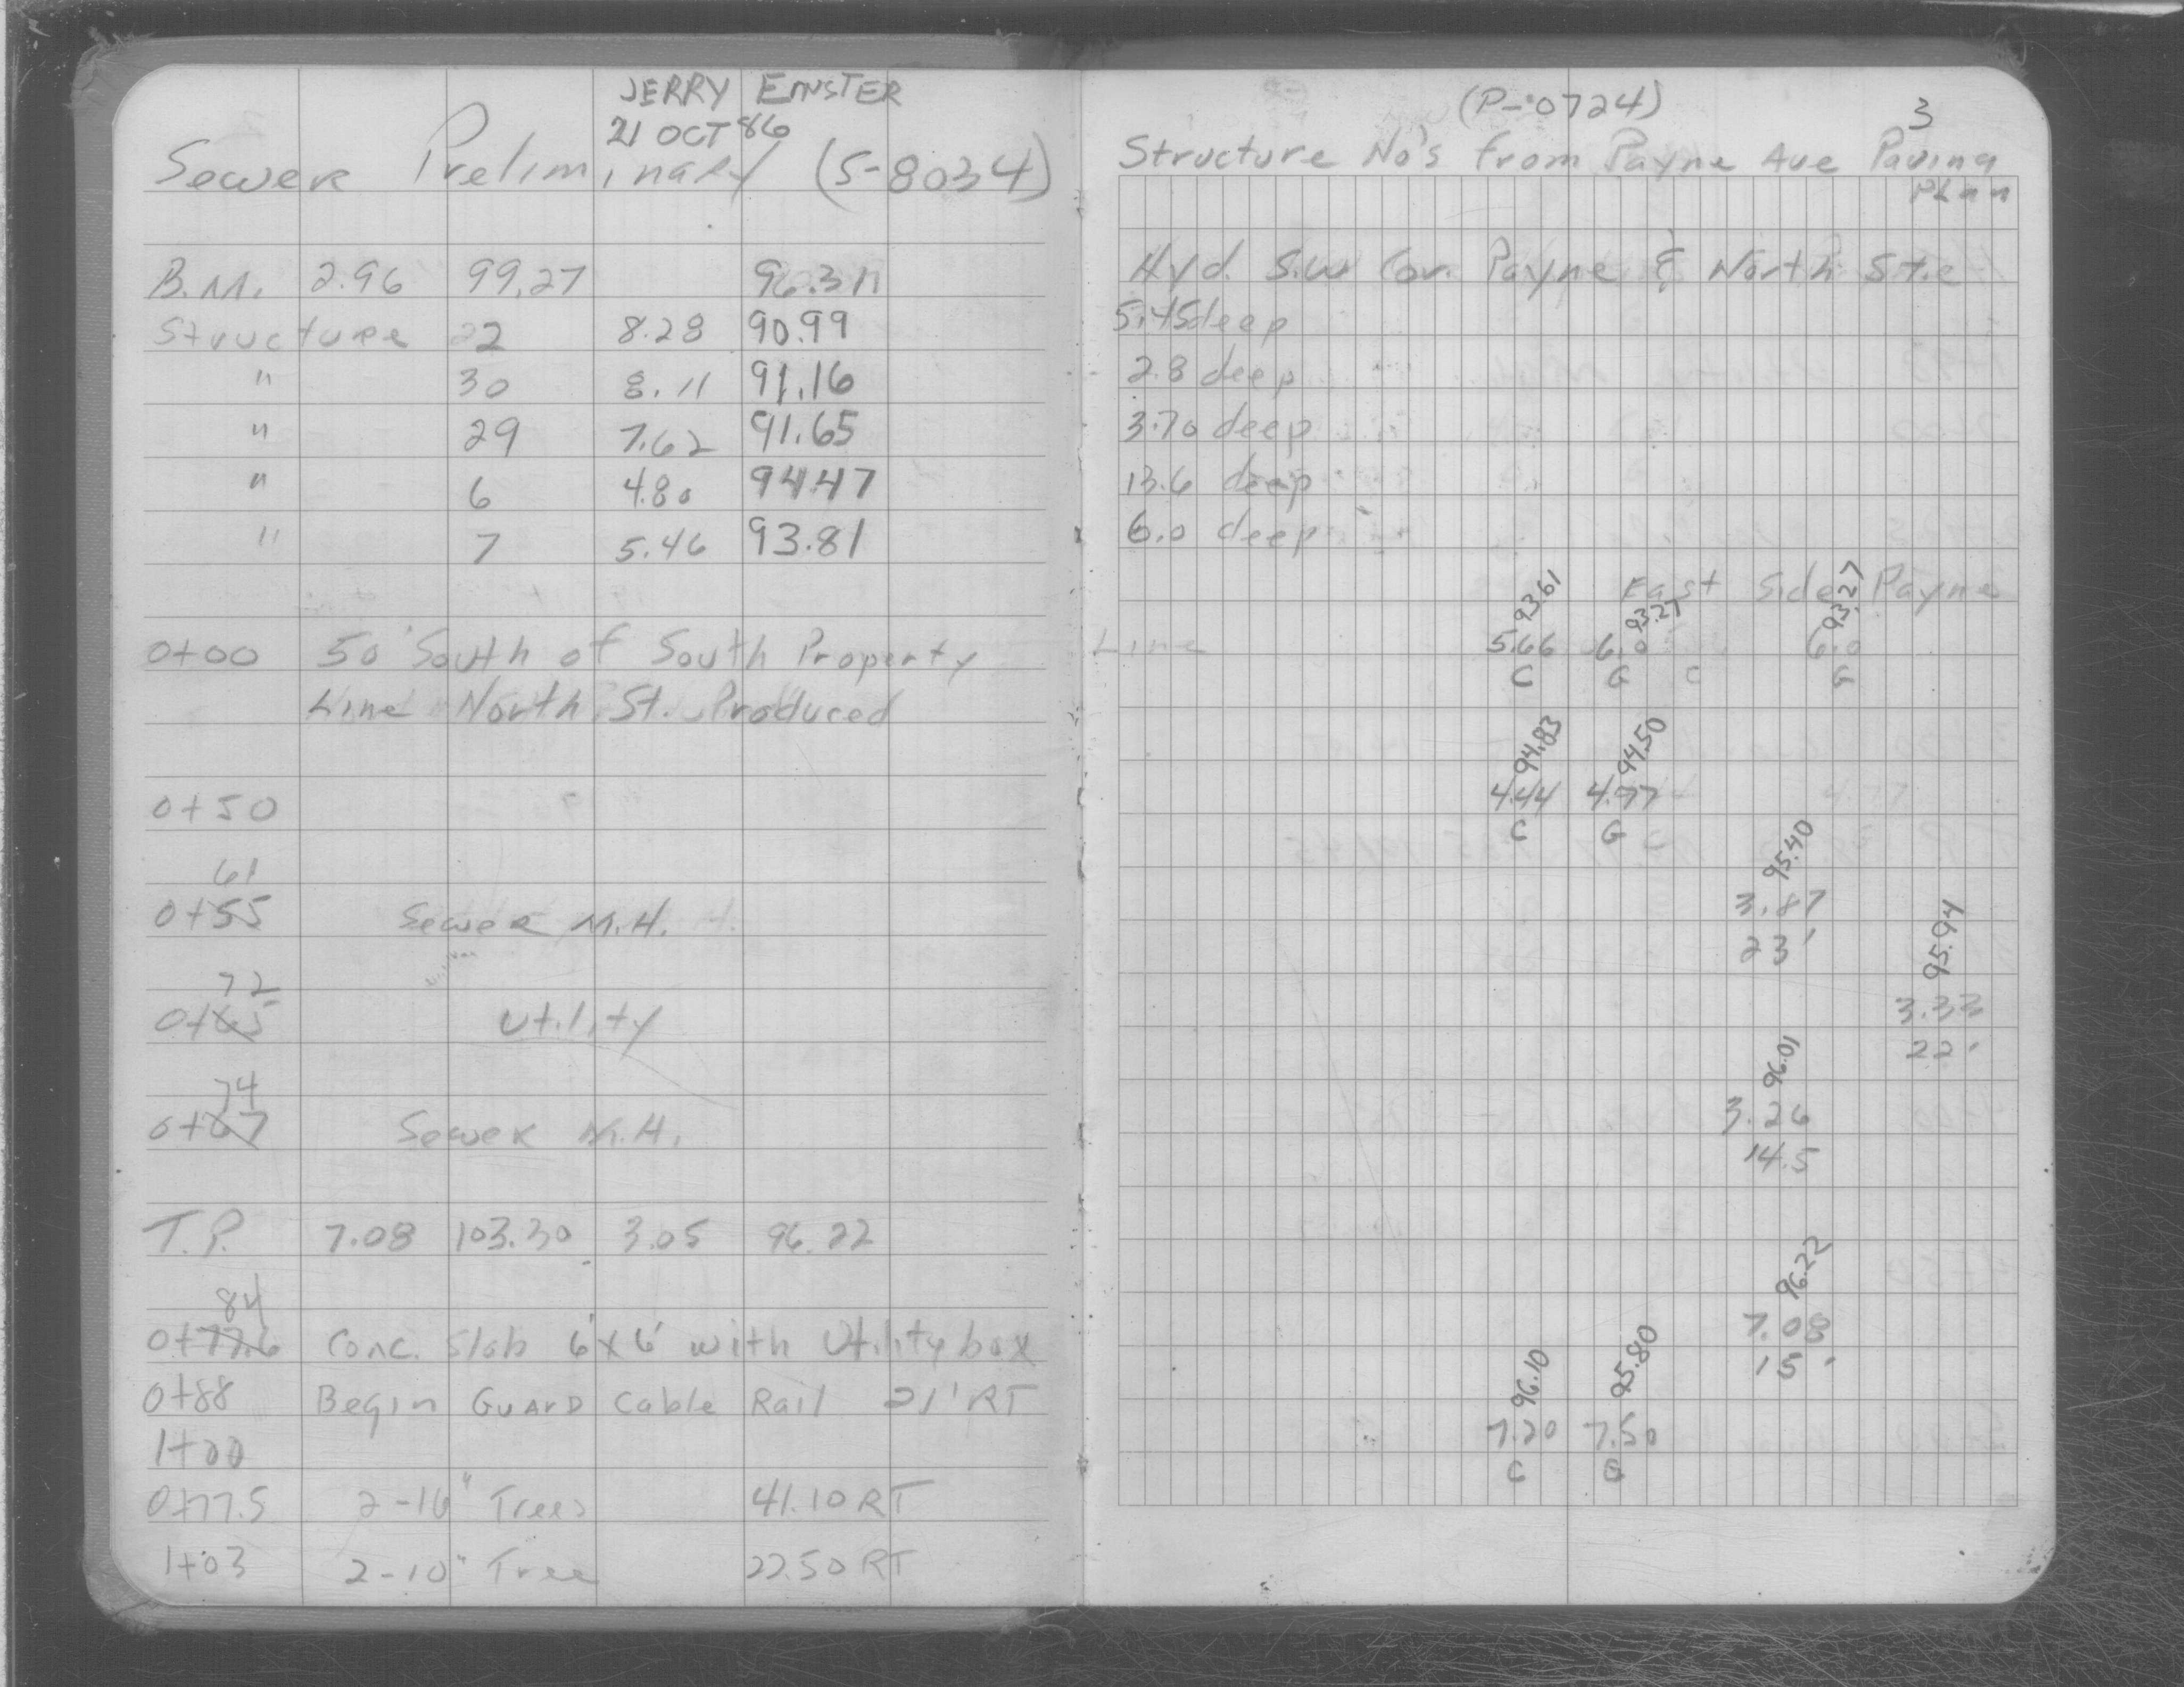 JERRY EMSTER
21 OCT 86
Sewer Preliminary (S-8034)
B.M. 2.96 99.27 96.31
Structure 22 8.28 90.99
" 30 8.11 91.16
" 29 7.62 91.65
" 6 4.80 94.47
" 7 5.46 93.81
0+00 50' South of South Property
Line North St. Produced
0+50
61
0+55 Sewer M.H.
72
0+65 Utility
74
0+67 Sewer M.H.
T.P. 7.08 103.30 3.05 96.22
84
0+77.6 Conc. Slab 6'x6' with Utility box
0+88 Begin GUARD Cable Rail 21' RT
1+00
0+77.5 2-16" Trees 41.10 RT
1+03 2-10" Tree 22.50 RT
(P-0724) 3
Structure No's from Payne Ave Paving
Plan
Hyd. S.W. Cor. Payne & North St.
5.45 deep
2.8 deep
3.70 deep
13.6 deep
6.0 deep
East Side Payne
93.61 93.27 93.27
Line 5.66 6.0 6.0
C G C G
94.83 94.50
4.44 4.77
C G
95.40
3.87
23'
95.94
3.33
22'
96.01
3.26
14.5
96.22
7.08
15'
96.10 95.80
7.20 7.50
C G